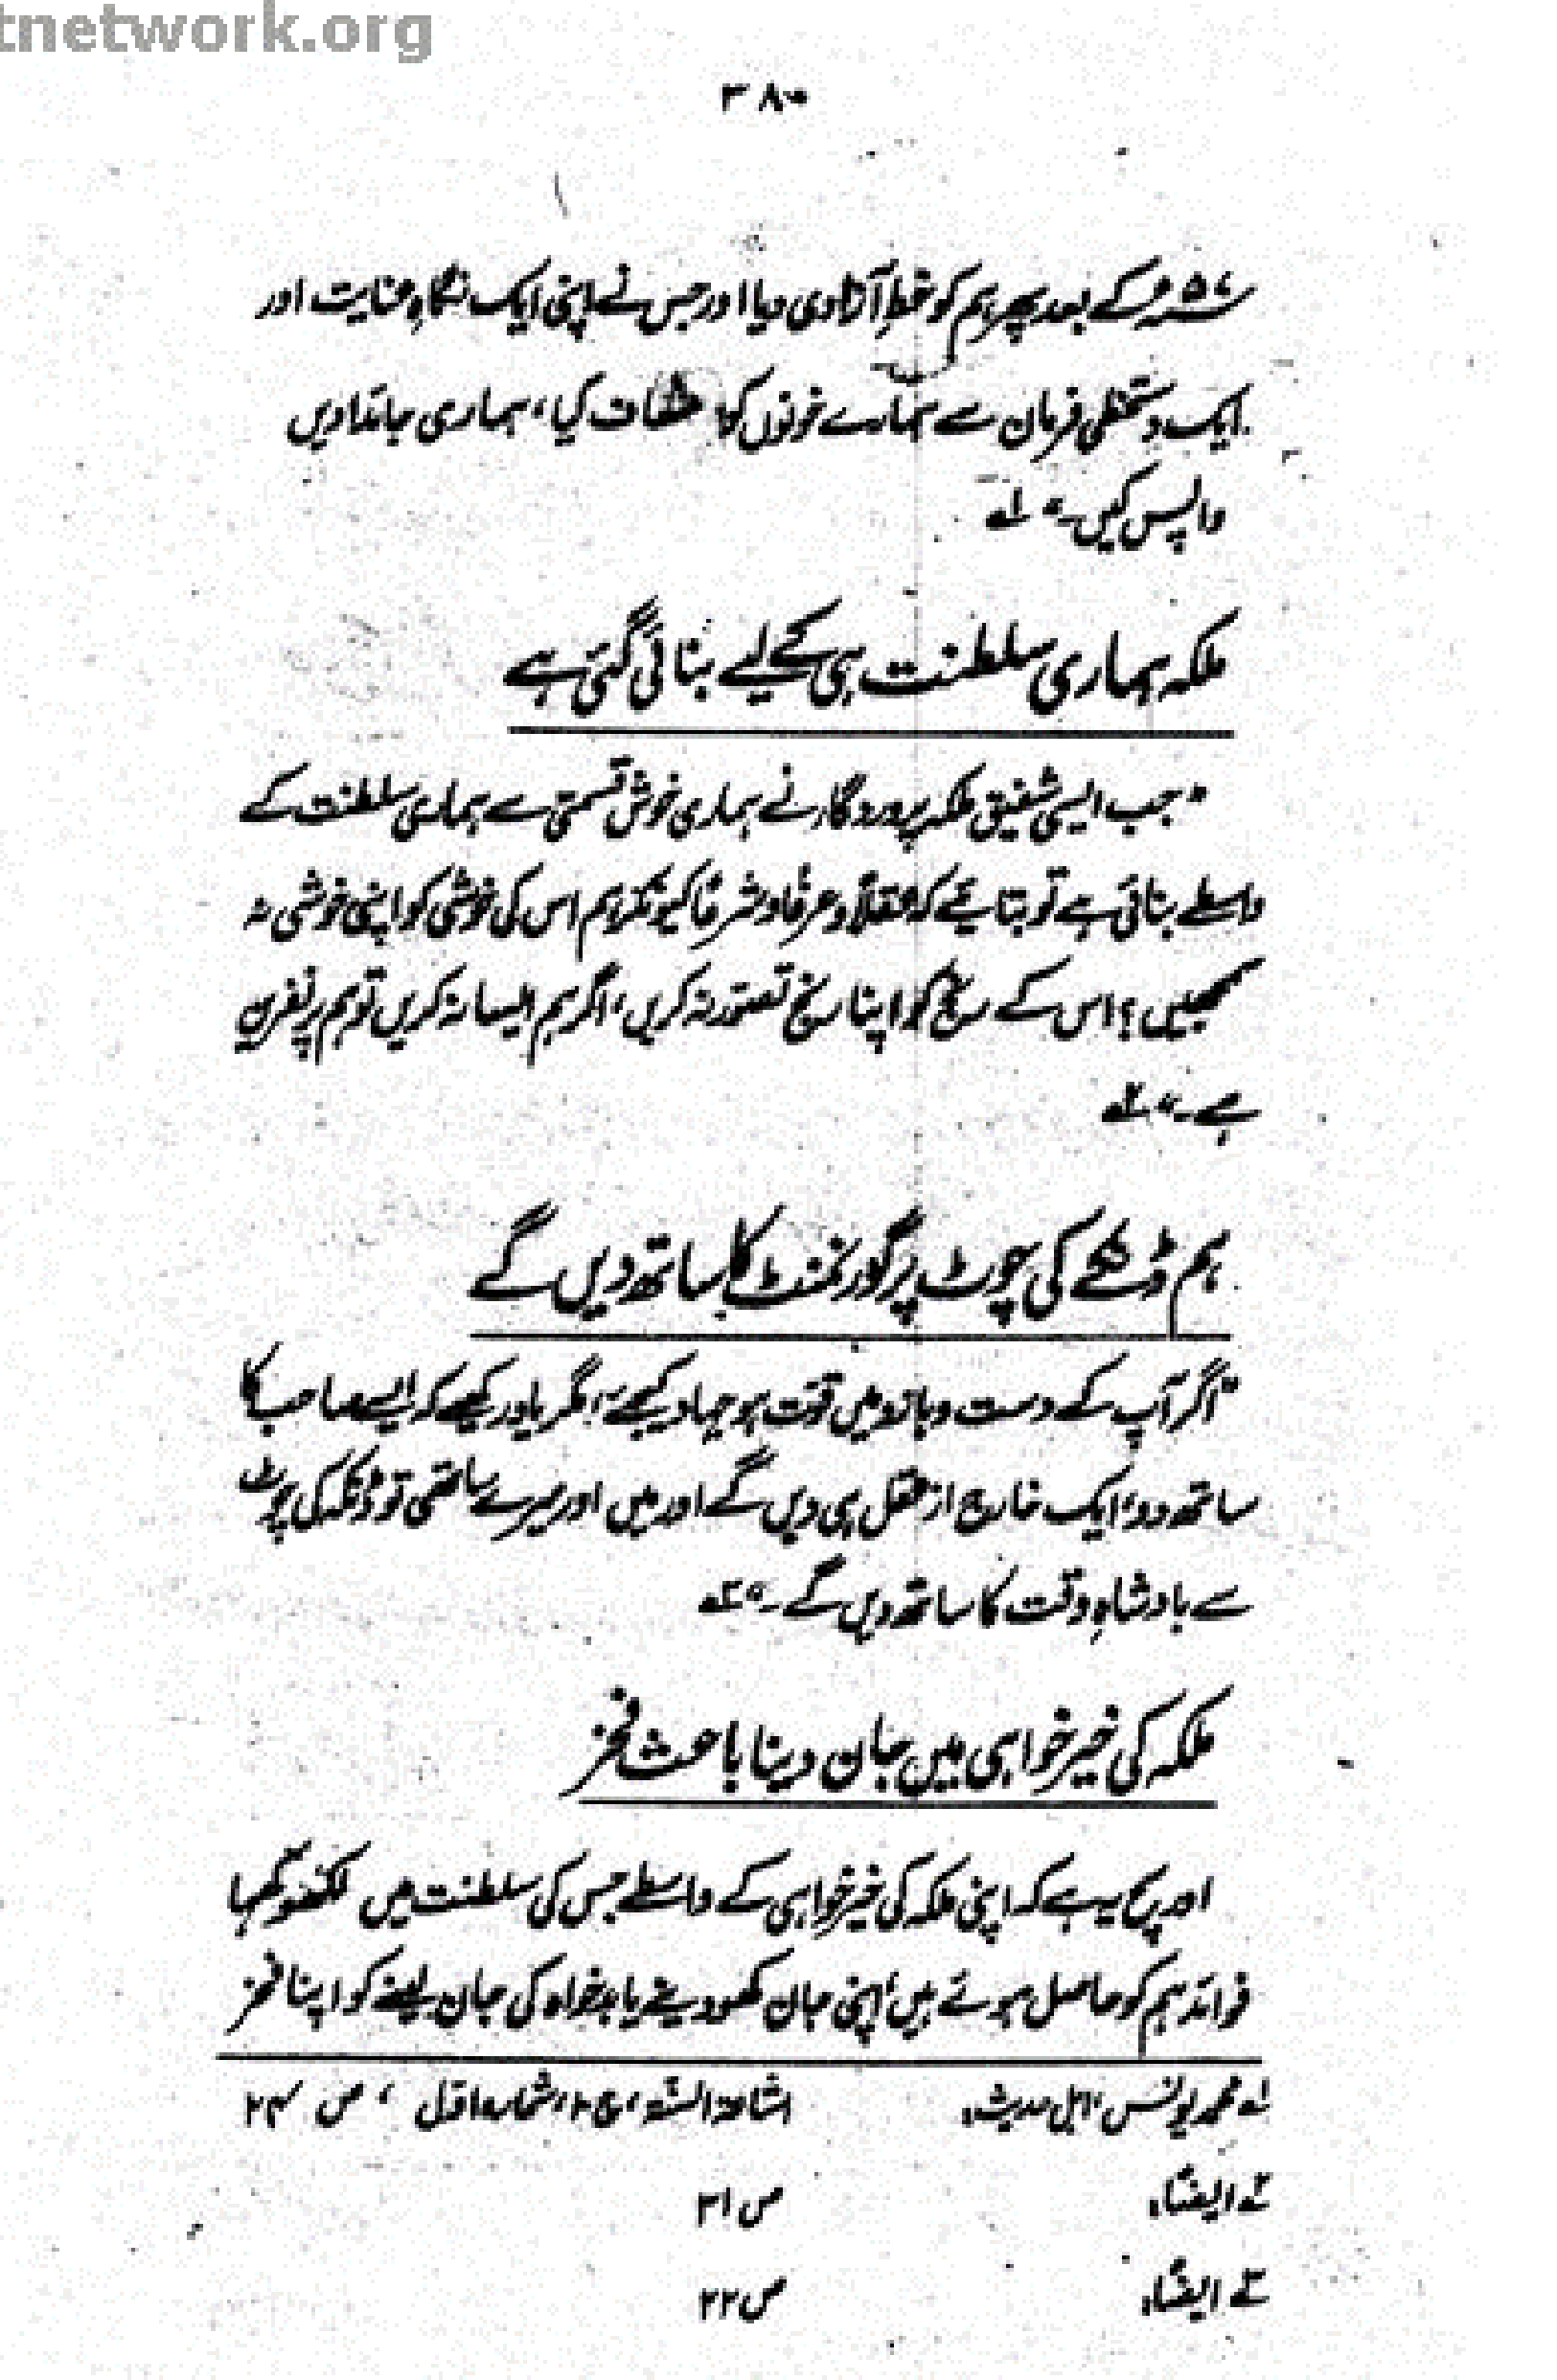 tnetwork.org
۳۸۰
۵۷ء کے بعد پھر ہم کو خطِ آزادی دیا اور جس نے اپنی ایک نگاہِ عنایت اور
ایک دستخطی فرمان سے ہمارے خونوں کو معاف کیا، ہماری جائدادیں
واپس کیں۔" لے
ملکہ ہماری سلطنت ہی کے لیے بنائی گئی ہے
"جب ایسی شفیق ملکہ پروردگار نے ہماری خوش قسمتی سے ہماری سلطنت کے
واسطے بنائی ہے تو بتائیے کہ عقلاً و عرفاً و شرعاً کیونکر ہم اس کی خوشی کو اپنی خوشی نہ
سمجھیں؟ اس کے رنج کو اپنا رنج تصوّر نہ کریں، اگر ہم ایسا نہ کریں تو ہم پر نفرین
ہے۔" ۲ے
ہم ڈنکے کی چوٹ پر گورنمنٹ کا ساتھ دیں گے
"اگر آپ کے دست و بازو میں قوّت ہو جہاد کیجئے، مگر یاد رکھیے کہ ایسے صاحب کا
ساتھ دو، ایک خارج از عقل ہی دیں گے اور میں اور میرے ساتھی تو ڈنکہ کی چوٹ
سے بادشاہِ وقت کا ساتھ دیں گے۔" ۳ے
ملکہ کی خیر خواہی میں جان دینا باعث فخر
اور سچ یہ ہے کہ اپنی ملکہ کی خیر خواہی کے واسطے جس کی سلطنت میں لکھوکھہا
فوائد ہم کو حاصل ہوئے ہیں، اپنی جان کھو دینے یا بدخواہ کی جان لینے کو اپنا فخر
لے محمد یونس، اہل حدیث: اشاعۃ السنۃ، ج ۲، شمارہ اوّل ، ص ۲۴
۲ے ایضاً: ص ۲۱
۳ے ایضاً: ص ۲۲